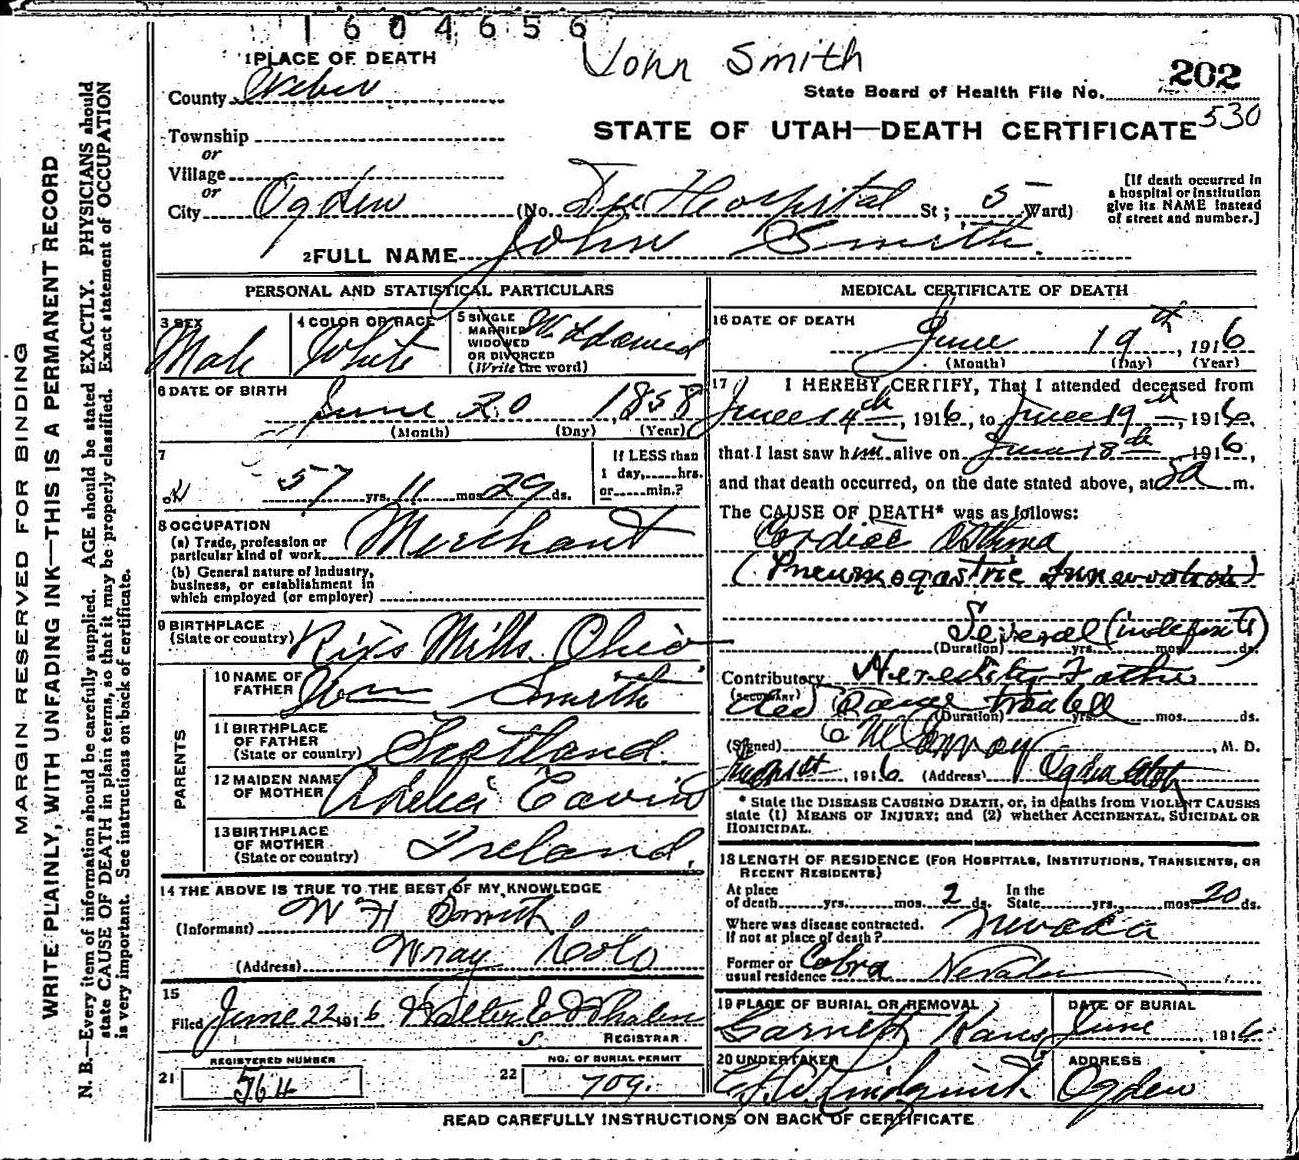 1604656
John Smith
202
1 PLACE OF DEATH
County Weber
State Board of Health File No.
530
STATE OF UTAH—DEATH CERTIFICATE
Township
or
Village
or
City Ogden (No. Dee Hospital St; 5 Ward)
[If death occurred in a hospital or institution give its NAME instead of street and number.]
2 FULL NAME John Smith.
PERSONAL AND STATISTICAL PARTICULARS
3 SEX Male
4 COLOR OR RACE White
5 SINGLE MARRIED WIDOWED OR DIVORCED (Write the word) Widowed
6 DATE OF BIRTH
June 20 1858
(Month) (Day) (Year)
7
57 yrs. 11 mos. 29 ds.
If LESS than
1 day,......hrs.
or......min.?
8 OCCUPATION
(a) Trade, profession or
particular kind of work Merchant
(b) General nature of industry,
business, or establishment in
which employed (or employer)
9 BIRTHPLACE
(State or country) Rix's Mills, Ohio
PARENTS
10 NAME OF
FATHER Wm Smith
11 BIRTHPLACE
OF FATHER
(State or country) Scotland.
12 MAIDEN NAME
OF MOTHER
13 BIRTHPLACE
OF MOTHER
(State or country) Ireland.
14 THE ABOVE IS TRUE TO THE BEST OF MY KNOWLEDGE
(Informant) W H Smith
(Address) Wray Colo
15
Filed June 22 1916 Walter E Whalen
REGISTRAR
REGISTERED NUMBER
21 564
NO. OF BURIAL PERMIT
22 709.
MEDICAL CERTIFICATE OF DEATH
16 DATE OF DEATH
June 19th, 1916
(Month) (Day) (Year)
17 I HEREBY CERTIFY, That I attended deceased from
June 14th, 1916, to June 19th, 1916,
that I last saw him alive on June 18th 1916,
and that death occurred, on the date stated above, at m.
The CAUSE OF DEATH* was as follows:
Cardiac Asthma
(Pneumogastric Innervation)
Several (indefinite)
(Duration) yrs. mos. ds.
Contributory Heredity Father
(Secondary)
(Duration) yrs. mos. ds.
(Signed) E M Conroy, M. D.
, 1916. (Address) Ogden Utah
* State the DISEASE CAUSING DEATH, or, in deaths from VIOLENT CAUSES
state (1) MEANS OF INJURY; and (2) whether ACCIDENTAL, SUICIDAL OR
HOMICIDAL.
18 LENGTH OF RESIDENCE (FOR HOSPITALS, INSTITUTIONS, TRANSIENTS, OR
RECENT RESIDENTS)
At place of death yrs. mos. 2 ds. In the State yrs. mos. 20 ds.
Where was disease contracted.
If not at place of death? Nevada
Former or
usual residence Cobra Nevada
19 PLACE OF BURIAL OR REMOVAL
Garnett Kans
DATE OF BURIAL
June 1916.
20 UNDERTAKER
Lindquist
ADDRESS
Ogden
READ CAREFULLY INSTRUCTIONS ON BACK OF CERTIFICATE
MARGIN RESERVED FOR BINDING
WRITE PLAINLY, WITH UNFADING INK—THIS IS A PERMANENT RECORD
N. B.—Every item of information should be carefully supplied. AGE should be stated EXACTLY. PHYSICIANS should
state CAUSE OF DEATH in plain terms, so that it may be properly classified. Exact statement of OCCUPATION
is very important. See instructions on back of certificate.